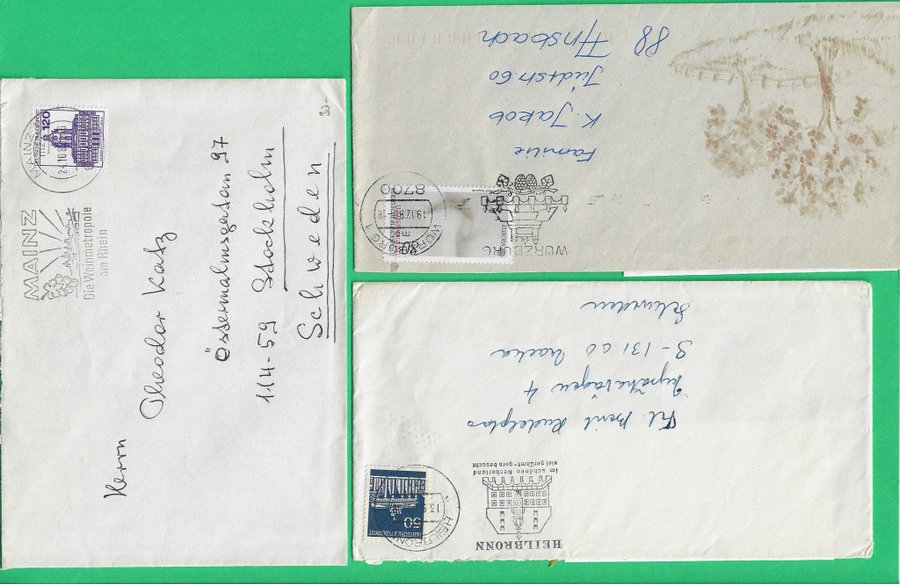 120
MAINZ
MAINZ
Die Weinmetropole
am Rhein
30-
Herrn
Theodor Katz
Östermalmsgatan 97
114-59 Stockholm
Schweden
Familie
K. Jakob
Jüdtstr 60
88 Ansbach
WÜRZBURG 1
19.12.8
8700
80
WÜRZBURG
S-131 00 Nacka
Schweden
HEILBRONN
im schönen Neckarland
viel gerühmt - gern besucht
HEILBRONN
50
DEUTSCHE BUNDESPOST